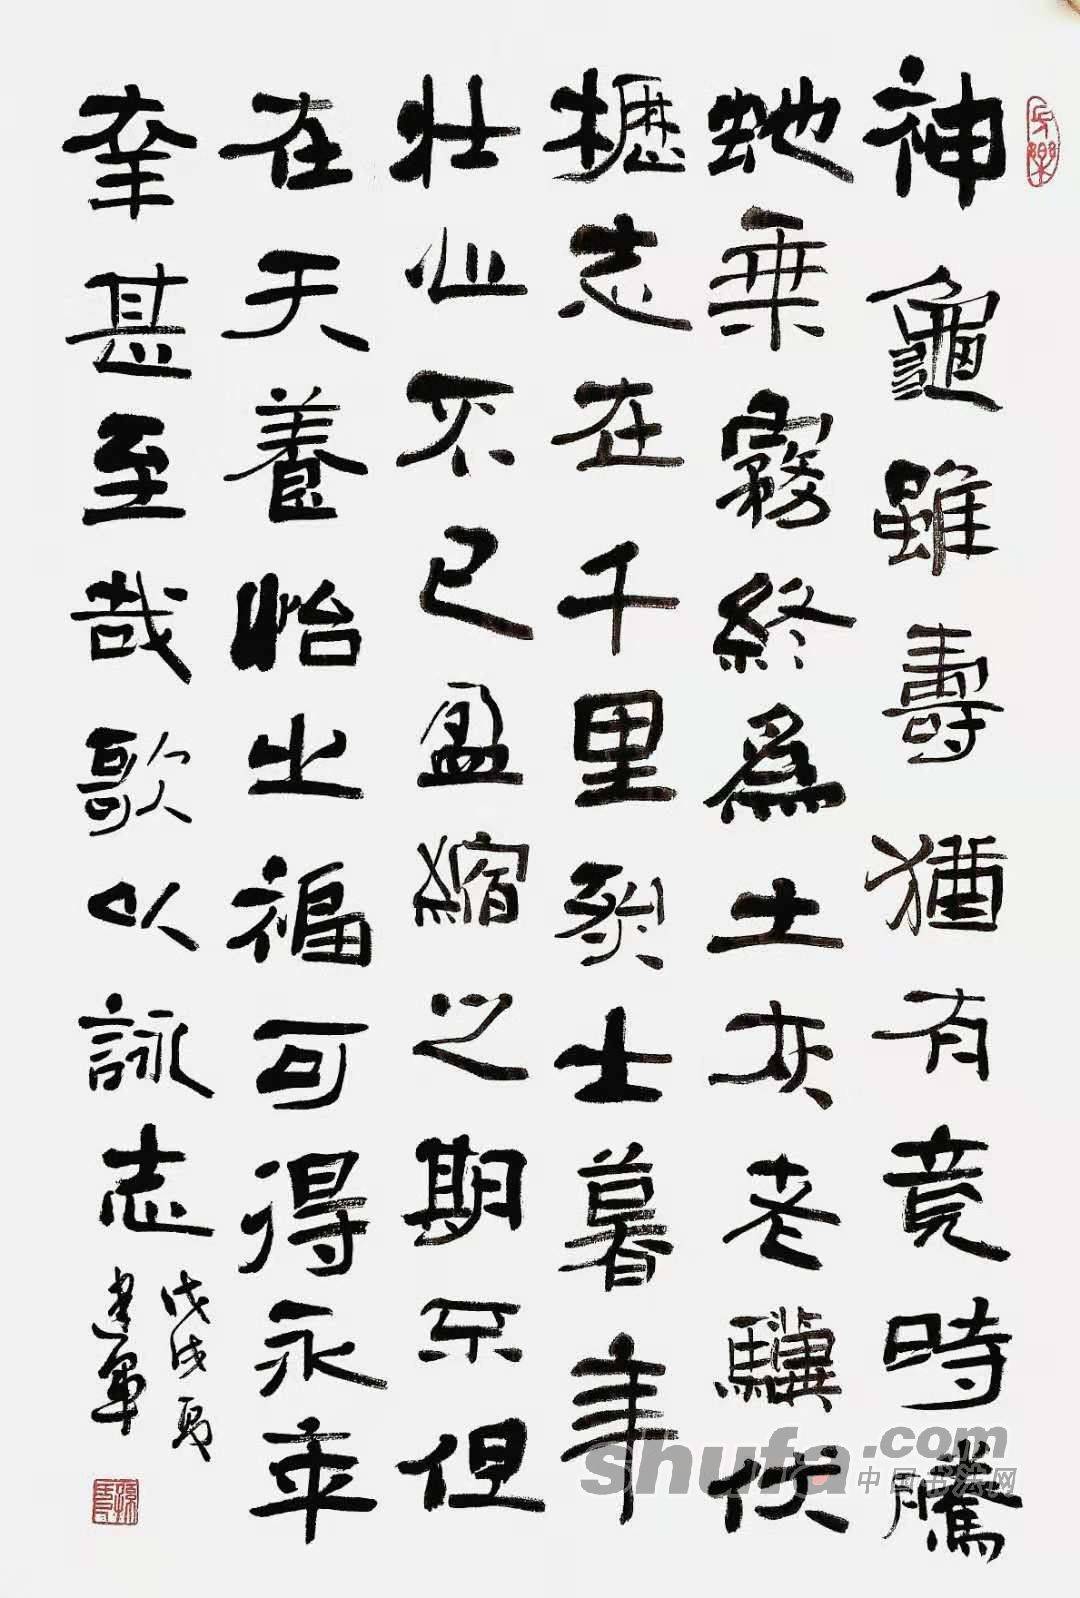 神龜雖壽猶有竟時騰
虵乘霧終爲土灰老驥伏
櫪志在千里烈士暮年
壯心不已盈縮之期不但
在天養怡之福可得永年
幸甚至哉歌以詠志
戊戌夏
建軍
shufa.com
中国书法网